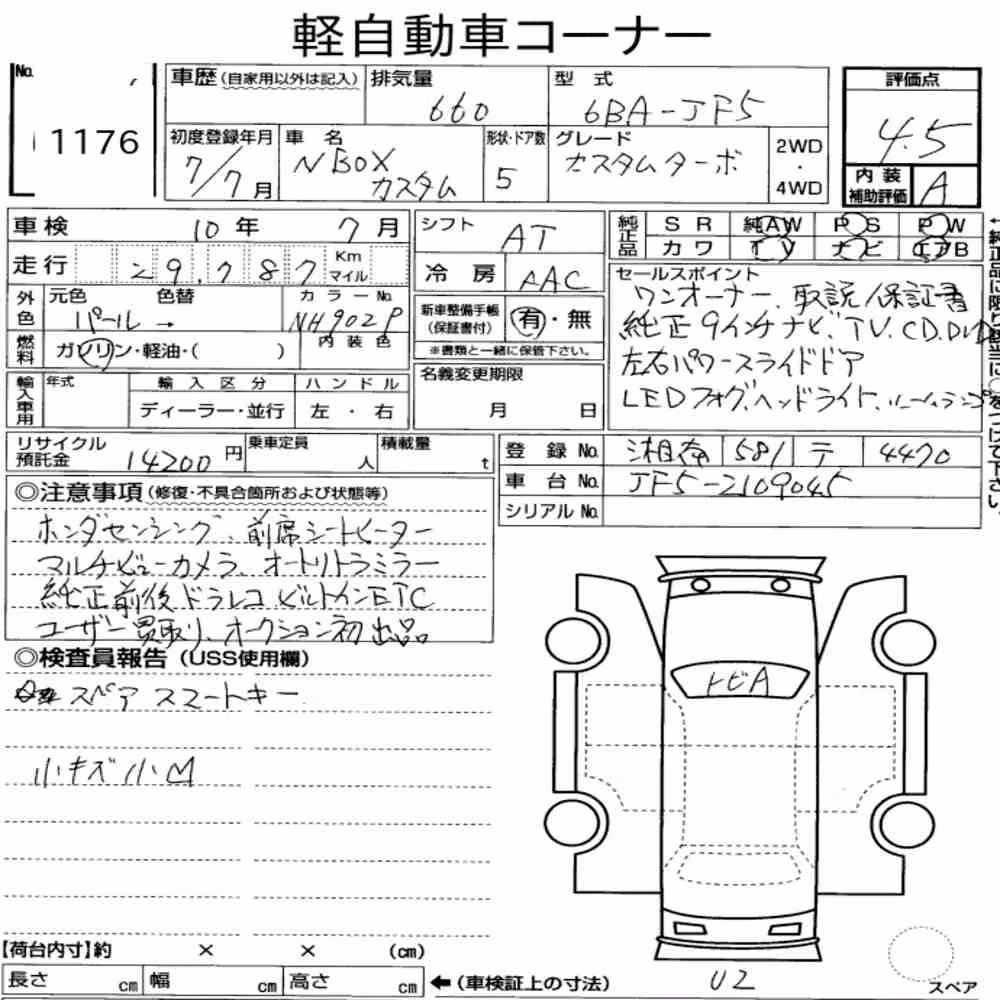 軽自動車コーナー
No. 1176
車歴 (自家用以外は記入)
排気量 660
型式 6BA-JF5
評価点 4.5
初度登録年月 7/7月
車名 NBOX カスタム
形状・ドア数 5
グレード カスタムターボ
2WD・4WD
内装補助評価 A
車検 10年 7月
シフト AT
純正品 SR 純AW PS PW
カワ TV ナビ エアB
走行 29,787 Km マイル
冷房 AAC
外色 元色 色替 カラーNo.
パール→ NH902P
内装色
燃料 ガソリン・軽油・( )
新車整備手帳(保証書付) 有・無
※書類と一緒に保管下さい。
セールスポイント
ワンオーナー、取説/保証書
純正9インチナビ、TV.CD.DVD
左右パワースライドドア
LEDフォグ、ヘッドライト、
輸入車用 年式 輸入区分 ハンドル
ディーラー・並行 左・右
名義変更期限
月 日
リサイクル預託金 14200円
乗車定員 人
積載量 t
登録No. 湘南 581 テ 4470
車台No. JF5-2109045
シリアルNo.
◎注意事項(修復・不具合箇所および状態等)
ホンダセンシング、前席シートヒーター
マルチビューカメラ、オートリトラミラー
純正前後ドラレコ ビルトインETC
ユーザー買取り、オークション初出品
◎検査員報告(USS使用欄)
スペア スマートキー
小キズ小凹
トビA
【荷台内寸】約 × × (cm)
長さ cm 幅 cm 高さ cm
←(車検証上の寸法)
U2
スペア